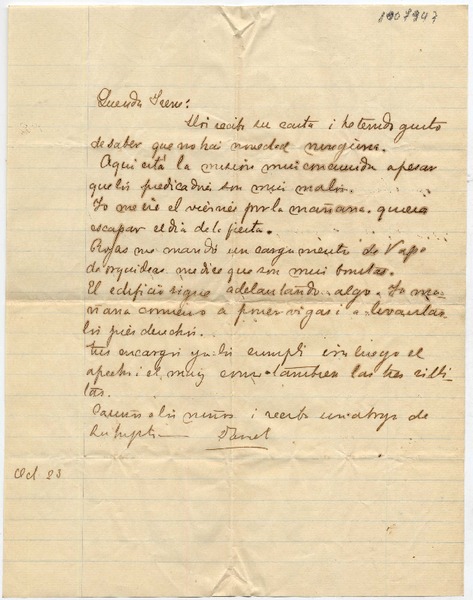 1907947
Querida Irene:
Hoi recibi su carta i he tenido gusto
de saber que no hai novedad ninguna.
Aqui está la mision mui concurrida apesar
que los predicadores son mui malos.
Yo me iré el viernes por la mañana. quiero
escapar el dia de la fiesta.
Rojas me mandó un cargamento de Vapo
de orquideas me dice que son mui bonitas.
El edificio sigue adelantando algo. Yo ma-
ñana comienzo a poner vigas i a levantar
los pies derechos.
Tus encargos ya los cumpli i van luego el
i el maiz como tambien las tres silli-
tas.
a los niños i recibe un abrazo de
Oct. 23